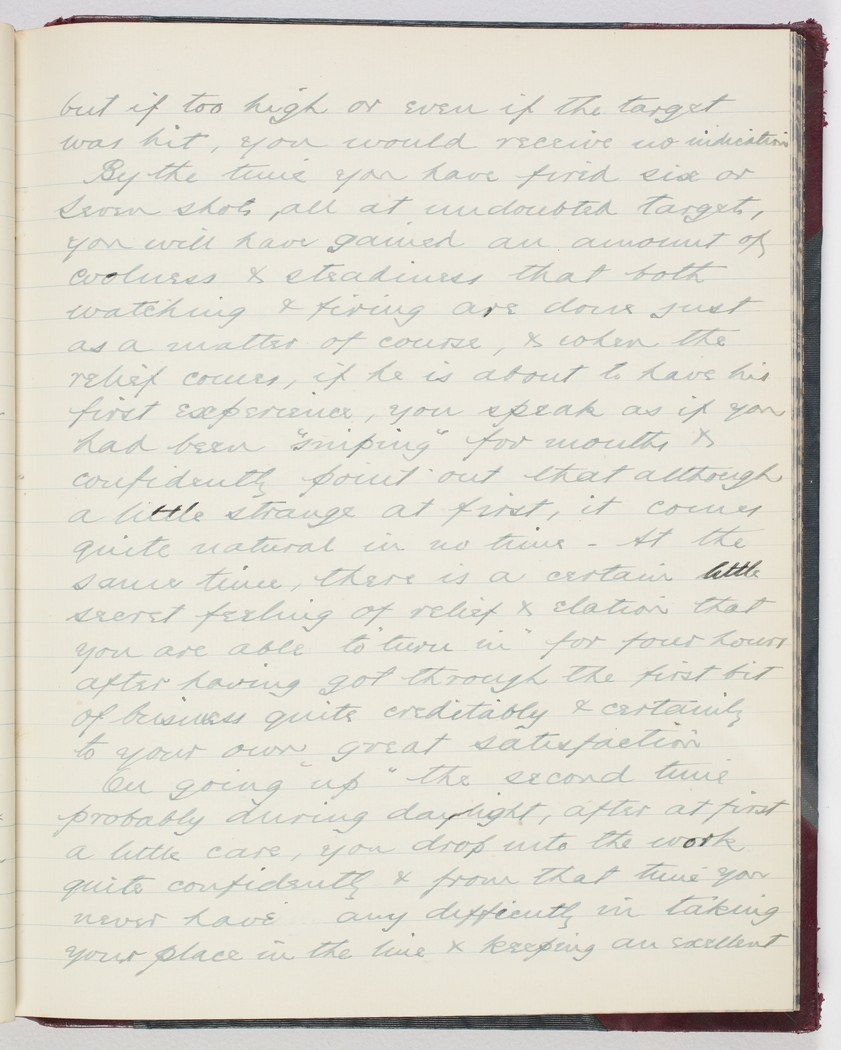 but if too high or even if the target
was hit, you would receive no indication
By the time you have fired six or
seven shots, all at undoubted targets,
you will have gained an amount of
coolness & steadiness that both
watching & firing are done just
as a matter of course, & when the
relief comes, if he is about to have his
first experience, you speak as if you
had been "sniping" for months &
confidently point out that although
a little strange at first, it comes
quite natural in no time - At the
same time, there is a certain little
secret feeling of relief & elation that
you are able to "turn in" for four hours
after having got through the first bit
of business quite creditably & certainly
to your own great satisfaction
On going "up" the second time
probably during daylight, after at first
a little care, you drop into the work
quite confidently & from that time you
never have any difficulty in taking
your place in the line & keeping an excellent